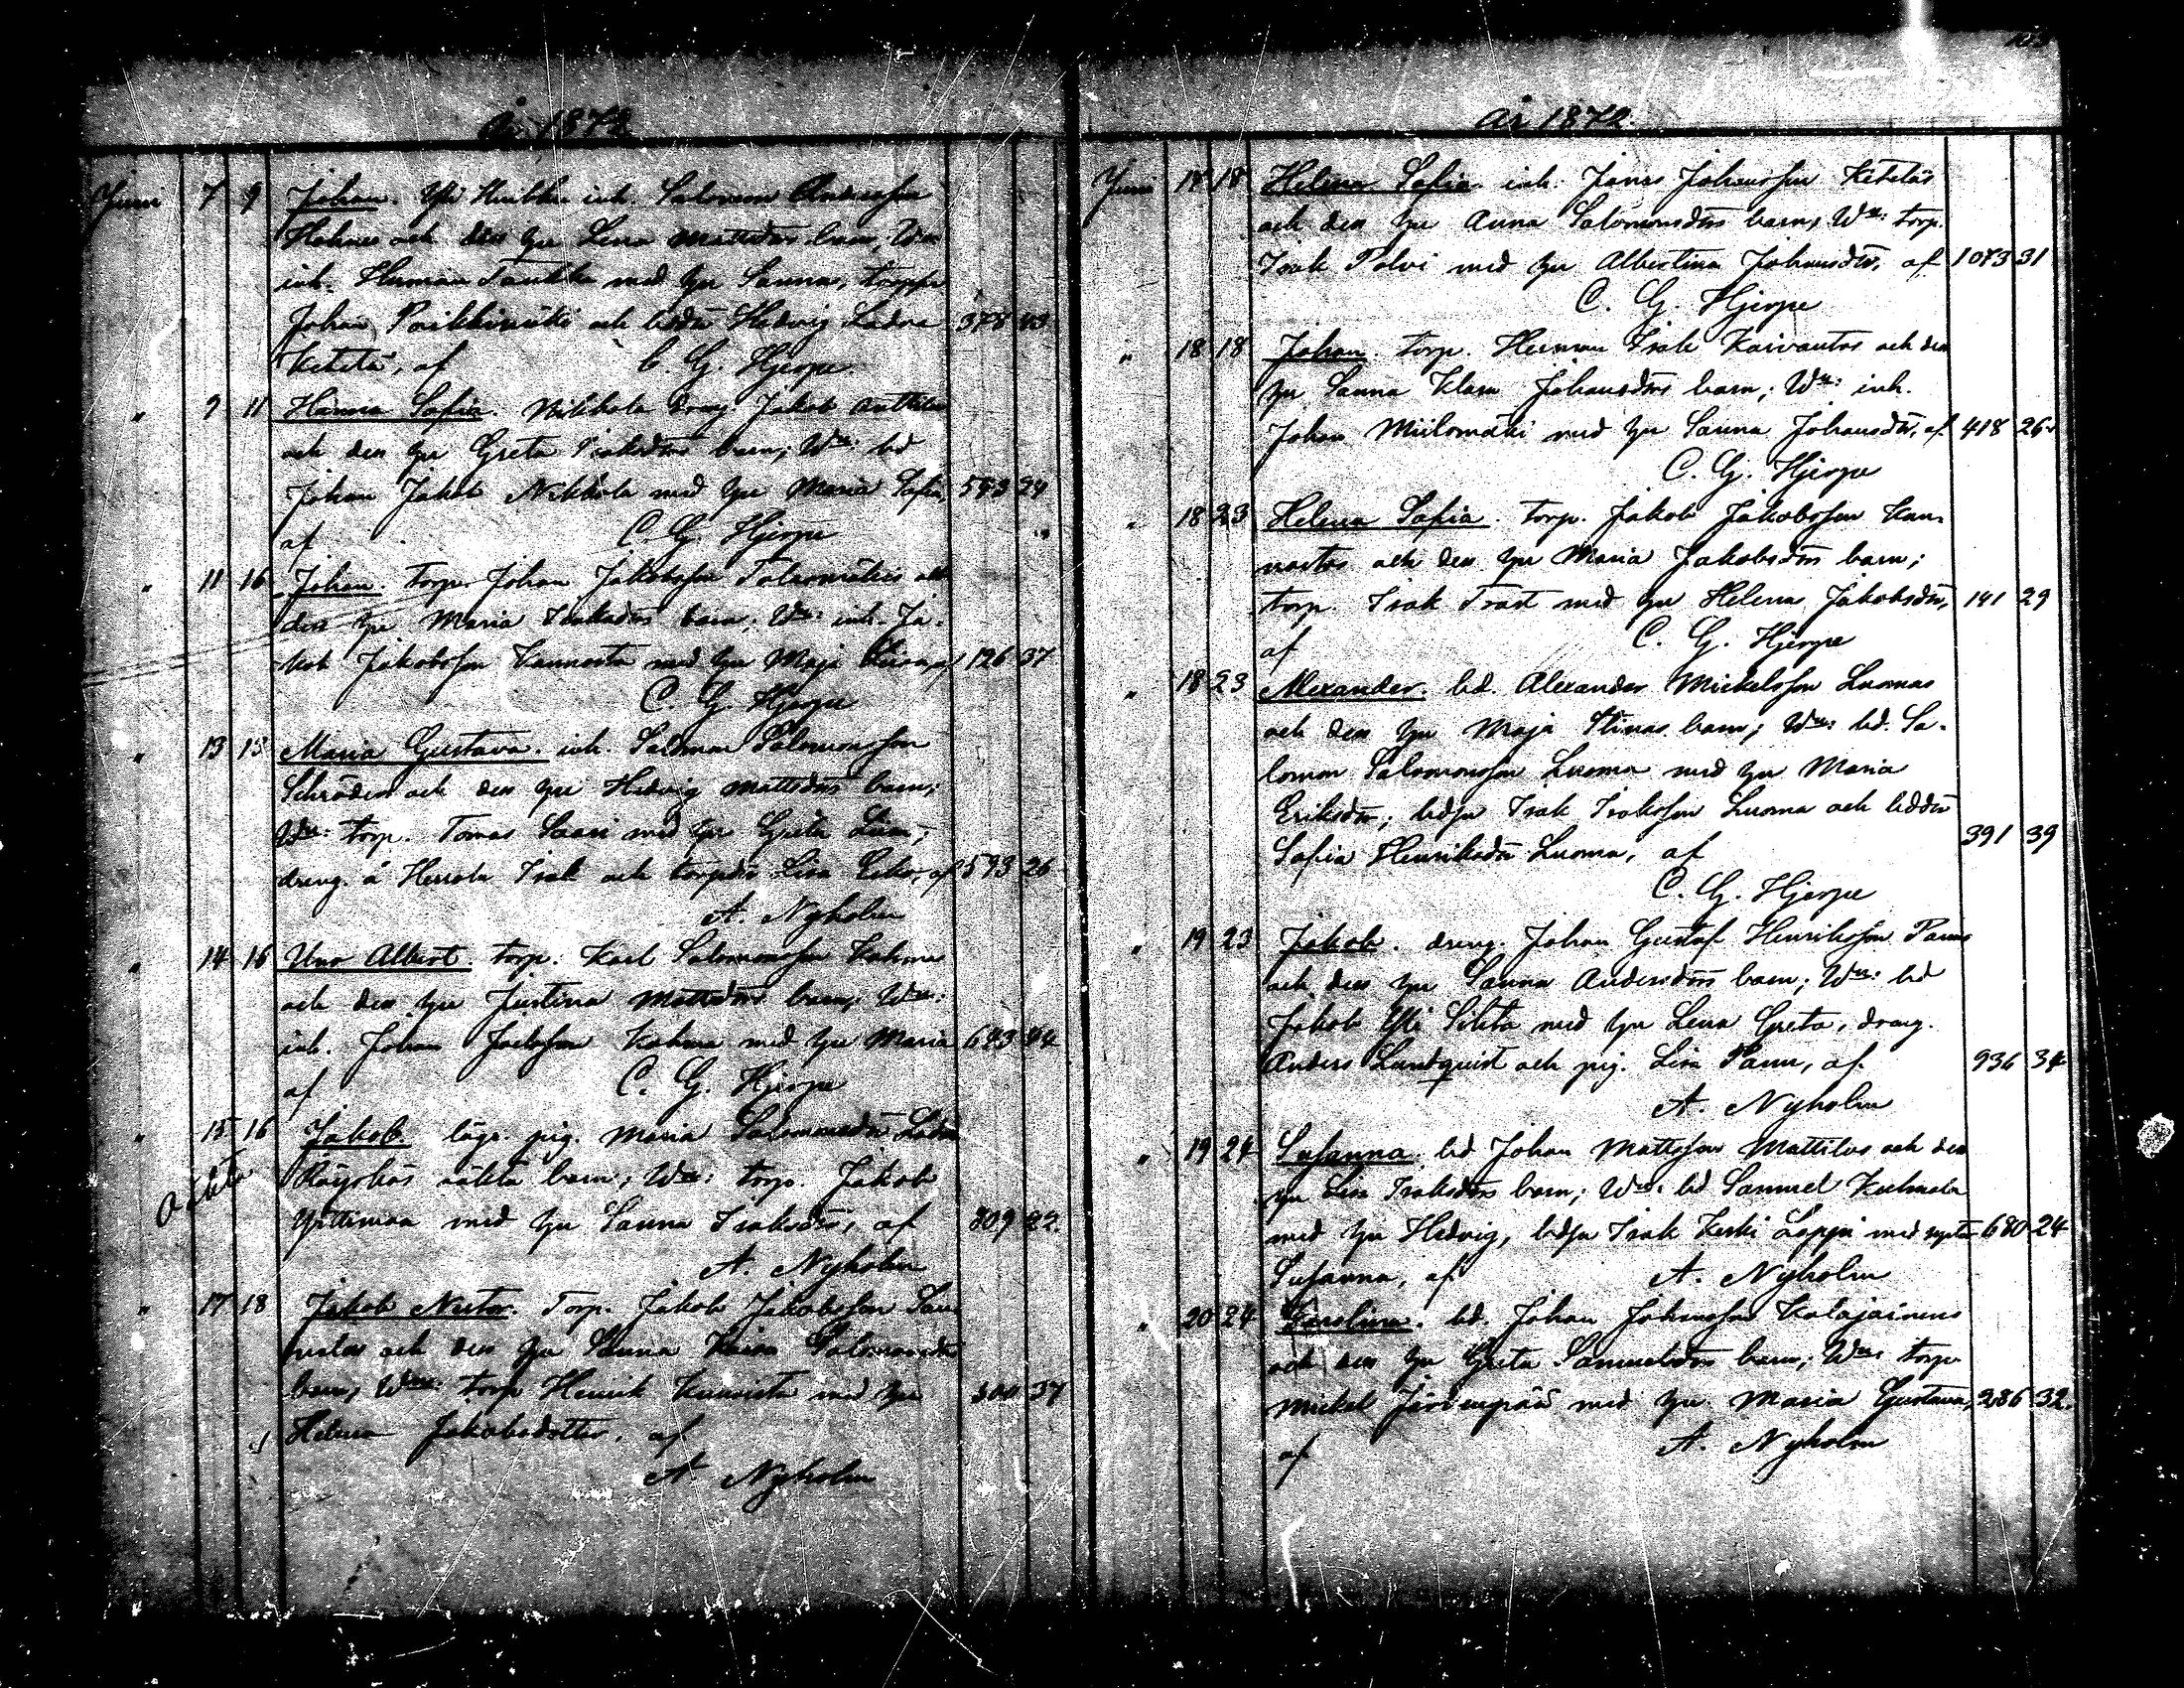 År 1872
Juni 7 9 Johan. Yli Huikku inh. Salomon Andersson
Hahnes och dess hu Lena Mattsdrs barn, Wne
inh. Herman Taukka med hu Sanna, torpps
Johan Poikkimäki och bddr Hedvig Ladva 378 43
Ketelä, af C. G. Hjerpe
" 9 11 Hanna Sofia. Nikkola dräng. Jakob Anttila
och des hu Greta Isaksdrs barn; Wne: bd
Johan Jakob Nikkola med hu Maria Sofia, 593 24
af C. G. Hjerpe
" 11 16 Johan. torp. Johan Jakobsson och
des hu Maria Isaksdrs barn; Wne: inh. Ja-
kob Jakobsson Kannosta med hu Maja af 126 37
C. G. Hjerpe
" 13 15 Maria Gustava. inh. Salomon Salomonsson
Schröder och des hu Hedvig Mattsdrs barn;
Wne: torp. Tomas Saari med hu Greta Lisa;
dreng. å Herrola Isak och torpdr Lisa af 593 26
A. Nyholm
" 14 16 Uno Albert. torp. Karl Salomonsson Kahma
och des hu Justina Mattsdrs barn; Wne:
inh. Johan Joelsson Kahma med hu Maria 643 44
af C. G. Hjerpe
" 15 16 Jakob lägr. pig. Maria Salomonsdr
Oäkta oäkta barn; Wne: torp. Jakob
med hu Sanna Isaksdr, af 809 22
A. Nyholm
" 17 18 Jakob Nestor. Torp. Jakob Jakobsson
och des hu Sanna Kaisa Salomonsdrs
barn; Wne: torp Henrik Kuusisto med hu 300 37
Helena Jakobsdotter, af
A Nyholm
År 1872.
Juni 18 18 Helena Sofia. inh. Jonas Johansson Keteläs
och des hu Anna Salomonsdrs barn, Wne: torp.
Isak Polvi med hu Albertina Johansdr, af 1073 31
C. G. Hjerpe
" 18 18 Johan. torp. Herman Isak Koivuntos och des
hu Sanna Klara Johansdrs barn; Wne: inh.
Johan Miilomäki med hu Sanna Johansdr, af 418 26
C. G. Hjerpe
" 18 23 Helena Sofia. torp. Jakob Jakobsson Kan-
nostos och des hu Maria Jakobsdrs barn;
torp. Isak Trast med hu Helena Jakobsdr, 141 29
af C. G. Hjerpe
" 18 23 Alexander. bd. Alexander Mickelsson Luomas
och des hu Maja Stinas barn; Wne: bd. Sa-
lomon Salomonsson Luoma med hu Maria
Eriksdr; bdsn Isak Isaksson Luoma och bddr
Sofia Henriksdr Luoma, af 391 39
C. G. Hjerpe
" 19 23 Jakob. dreng. Johan Gustaf Henriksson Panu
och des hu Sanna Andersdrs barn; Wne: bd
Jakob Yli Sikka med hu Lena Greta, dräng.
Anders Lundquist och pig. Lisa Panu, af 936 34
A. Nyholm
" 19 24 Susanna. bd Johan Mattsson Mattilas och des
hu Lisa Isaksdrs barn; Wne: bd Samuel Kuhmola
med hu Hedvig, bdsn Isak Keski Loppi med syster 680 24
Susanna, af A. Nyholm
" 20 24 Karolina. bd. Johan Johansson Kalajainens
och des hu Greta Samuelsdrs barn; Wne: torp
Mickel Järvenpää med hu Maria Gustava, 286 32.
af A. Nyholm